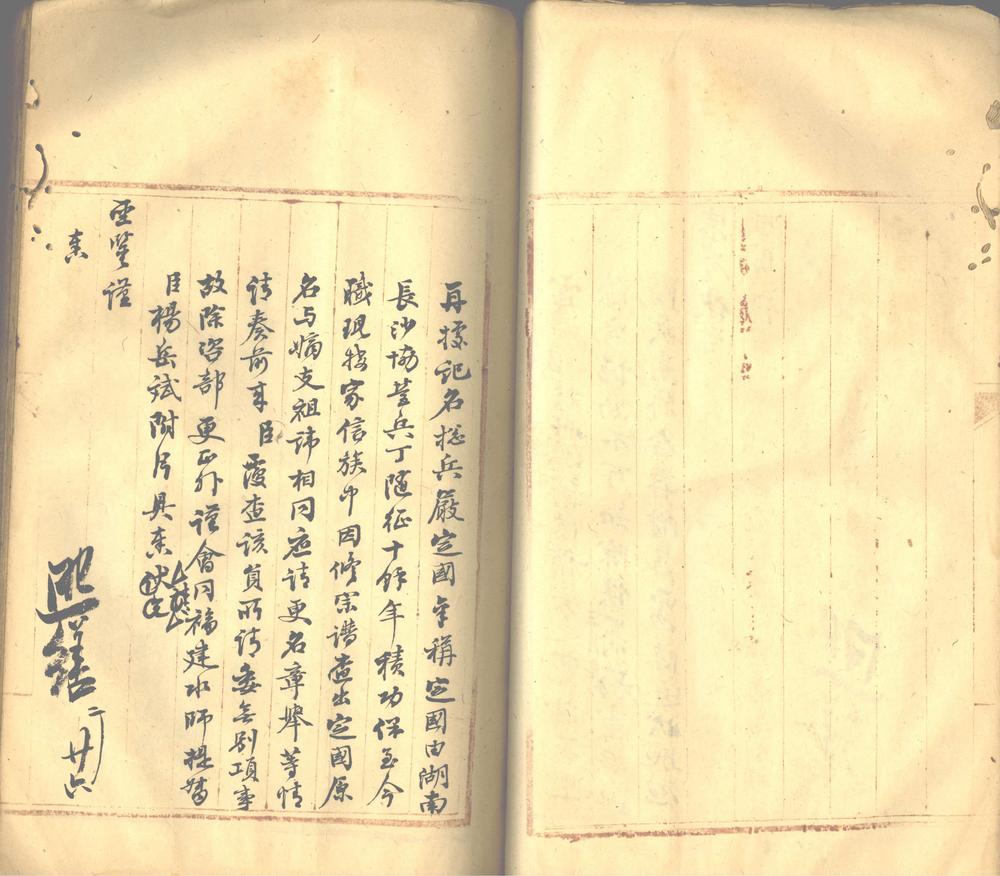 再據記名總兵嚴定國牟稱定國由湖南
長沙協營兵丁隨征十餘年積功保至今
職現接家信族中因修宗譜查出定國原
名与嫡支祖諱相同应請更名章舉等情
請奏前來臣覆查該員所請委無別項事
故除咨部更正外謹會同福建水師提督
臣楊岳斌附片具奏伏乞
聖鑒謹
奏
照繕
二廿六